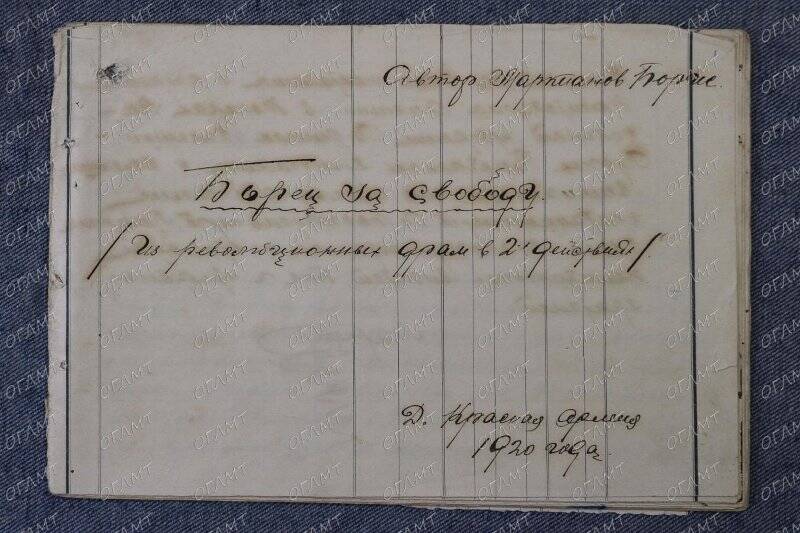 Автор Паркманов Борис.
Борец за свободу.
/ Из революционных драм в 2х действиях /.
Д. Красная армия
1920 года.
ОГАМТ